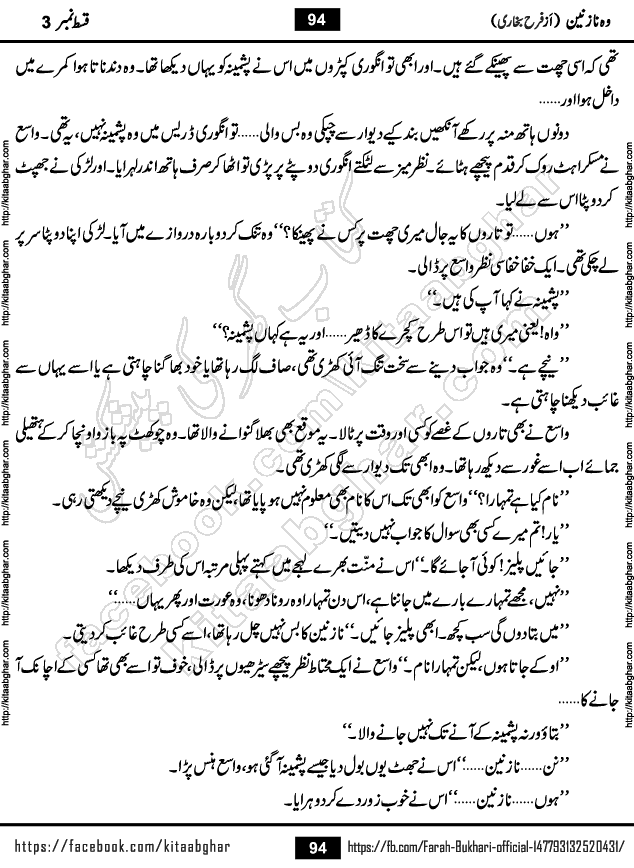 وہ نازنین (از فرح بخاری)
94
قسط نمبر 3
تھی کہ اسی چھت سے پھینکے گئے ہیں۔ اور ابھی تو انگوری کپڑوں میں اس نے پشمینہ کو یہاں دیکھا تھا۔ وہ دندناتا ہوا کمرے میں
داخل ہوا اور......
دونوں ہاتھ منہ پر رکھے آنکھیں بند کیے دیوار سے چپکی وہ بس والی......تو انگوری ڈریس میں وہ پشمینہ نہیں، یہ تھی۔ واسع
نے مسکراہٹ روک کر قدم پیچھے ہٹائے۔ نظر میز سے لٹکتے انگوری دوپٹے پر پڑی تو اٹھا کر صرف ہاتھ اندر لہرایا۔ اور لڑکی نے جھپٹ
کر دوپٹا اس سے لے لیا۔
’’ہوں......تو تاروں کا یہ جال میری چھت پر کس نے پھینکا؟‘‘ وہ تنک کر دوبارہ دروازے میں آیا۔ لڑکی اپنا دوپٹا سر پر
لے چکی تھی۔ ایک خفا خفا سی نظر واسع پر ڈالی۔
’’پشمینہ نے کہا آپ کی ہیں۔‘‘
’’واہ! یعنی میری ہیں تو اس طرح کچرے کا ڈھیر......اور یہ ہے کہاں پشمینہ؟‘‘
’’نیچے ہے۔‘‘ وہ جواب دینے سے سخت تنگ آئی کھڑی تھی، صاف لگ رہا تھا یا خود بھاگنا چاہتی ہے یا اسے یہاں سے
غائب دیکھنا چاہتی ہے۔
واسع نے بھی تاروں کے غصے کو کسی اور وقت پر ٹالا۔ یہ موقع بھی بھلا گنوانے والا تھا۔ وہ چوکھٹ پہ بازو اونچا کر کے ہتھیلی
جمائے اب اسے غور سے دیکھ رہا تھا۔ وہ ابھی تک دیوار سے لگی کھڑی تھی۔
’’نام کیا ہے تمہارا؟‘‘ واسع کو ابھی تک اس کا نام بھی معلوم نہیں ہو پایا تھا، لیکن وہ خاموش کھڑی نیچے دیکھتی رہی۔
’’یار! تم میرے کسی بھی سوال کا جواب نہیں دیتیں۔‘‘
’’جائیں پلیز! کوئی آجائے گا۔‘‘ اس نے منّت بھرے لہجے میں کہتے پہلی مرتبہ اس کی طرف دیکھا۔
’’نہیں، مجھے تمہارے بارے میں جاننا ہے، اس دن تمہارا وہ رونا دھونا، وہ عورت اور پھر یہاں......‘‘
’’میں بتادوں گی سب کچھ۔ ابھی پلیز جائیں۔‘‘ نازنین کا بس نہیں چل رہا تھا، اسے کسی طرح غائب کر دیتی۔
’’اوکے جاتا ہوں، لیکن تمہارا نام۔‘‘ واسع نے ایک محتاط نظر پیچھے سیڑھیوں پر ڈالی، خوف تو اسے بھی تھا کسی کے اچانک آ
جانے کا......
’’بتاؤ ورنہ پشمینہ کے آنے تک نہیں جانے والا۔‘‘
’’نن......نازنین......‘‘ اس نے جھٹ یوں بول دیا جیسے پشمینہ آ گئی ہو، واسع ہنس پڑا۔
’’ہوں......نازنین......‘‘ اس نے خوب زور دے کر دوہرایا۔
http://kitaabghar.com http://kitaabghar.com http://kitaabghar.com http://kitaabghar.com http://kitaabghar.com http://kitaabghar.com
http://kitaabghar.com http://kitaabghar.com http://kitaabghar.com http://kitaabghar.com http://kitaabghar.com http://kitaabghar.com
کتاب گھر کی پیشکش
kitaabghar.com
facebook.com/kitaabghar
https://facebook.com/kitaabghar
94
https://fb.com/Farah-Bukhari-official-147793132520431/